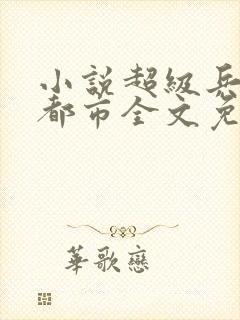 小說超級兵
都市全文免
華歌戀